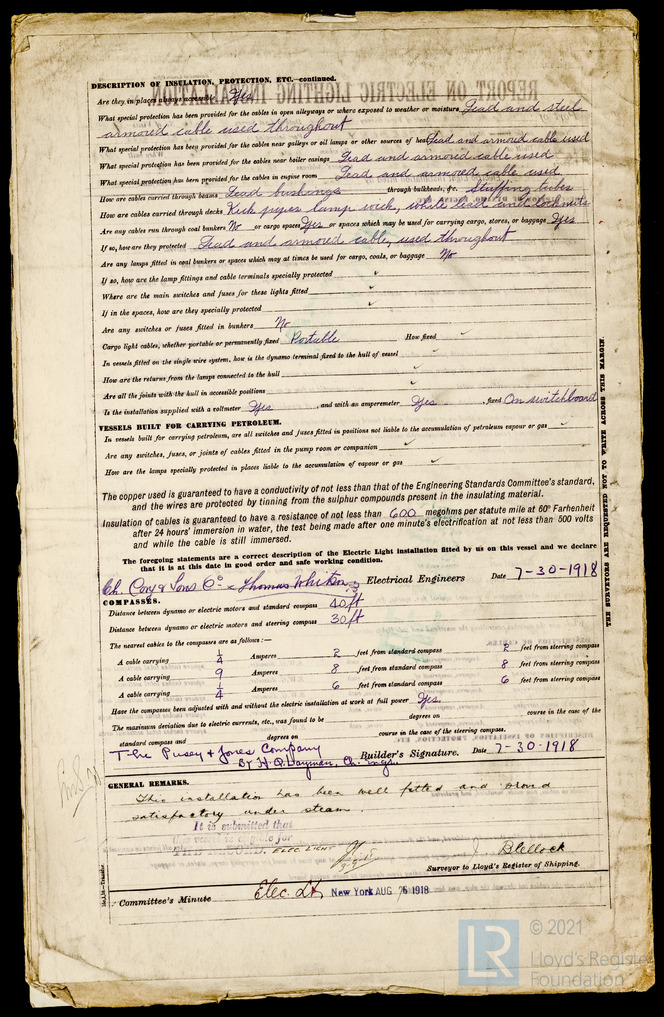 DESCRIPTION OF INSULATION, PROTECTION, ETC.—continued.
Are they in places always accessible Yes
What special protection has been provided for the cables in open alleyways or where exposed to weather or moisture Lead and steel
armored cable used throughout
What special protection has been provided for the cables near galleys or oil lamps or other sources of heat Lead and armored cable used
What special protection has been provided for the cables near boiler casings Lead and armored cable used
What special protection has been provided for the cables in engine room Lead and armored cable used
How are cables carried through beams Lead bushings through bulkheads, &c. Stuffing tubes
How are cables carried through decks Kick pipes lamp wick, white lead and locknuts
Are any cables run through coal bunkers No or cargo spaces Yes or spaces which may be used for carrying cargo, stores, or baggage Yes
If so, how are they protected Lead and armored cable, used throughout
Are any lamps fitted in coal bunkers or spaces which may at times be used for cargo, coals, or baggage No
If so, how are the lamp fittings and cable terminals specially protected ✓
Where are the main switches and fuses for these lights fitted ✓
If in the spaces, how are they specially protected ✓
Are any switches or fuses fitted in bunkers No
Cargo light cables, whether portable or permanently fixed Portable How fixed ✓
In vessels fitted on the single wire system, how is the dynamo terminal fixed to the hull of vessel ✓
How are the returns from the lamps connected to the hull ✓
Are all the joints with the hull in accessible positions ✓
Is the installation supplied with a voltmeter Yes, and with an amperemeter Yes, fixed On switchboard
VESSELS BUILT FOR CARRYING PETROLEUM.
In vessels built for carrying petroleum, are all switches and fuses fitted in positions not liable to the accumulation of petroleum vapour or gas ✓
Are any switches, fuses, or joints of cables fitted in the pump room or companion ✓
How are the lamps specially protected in places liable to the accumulation of vapour or gas ✓
The copper used is guaranteed to have a conductivity of not less than that of the Engineering Standards Committee's standard,
and the wires are protected by tinning from the sulphur compounds present in the insulating material.
Insulation of cables is guaranteed to have a resistance of not less than 600 megohms per statute mile at 60° Farhenheit
after 24 hours' immersion in water, the test being made after one minute's electrification at not less than 500 volts
and while the cable is still immersed.
The foregoing statements are a correct description of the Electric Light installation fitted by us on this vessel and we declare
that it is at this date in good order and safe working condition.
Ch. Cory & Sons Co. Thomas Electrical Engineers Date 7-30-1918
COMPASSES.
Distance between dynamo or electric motors and standard compass 40 ft
Distance between dynamo or electric motors and steering compass 30 ft
The nearest cables to the compasses are as follows:—
A cable carrying 1/4 Amperes 2 feet from standard compass 2 feet from steering compass
A cable carrying 9 Amperes 8 feet from standard compass 8 feet from steering compass
A cable carrying 1/4 Amperes 6 feet from standard compass 6 feet from steering compass
Have the compasses been adjusted with and without the electric installation at work at full power Yes.
The maximum deviation due to electric currents, etc., was found to be degrees on course in the case of the
standard compass and degrees on course in the case of the steering compass.
The Pusey & Jones Company
By Builder's Signature. Date 7-30-1918
GENERAL REMARKS.
This installation has been well fitted and proved
satisfactory under steam.
It is submitted that
this vessel is eligible for
THE RECORD. ELEC. LIGHT
J. Blellock
Surveyor to Lloyd's Register of Shipping.
Committee's Minute Elec. Lt. New York AUG 1918
THE SURVEYORS ARE REQUESTED NOT TO WRITE ACROSS THIS MARGIN.
LR
© 2021
Lloyd's Register
Foundation